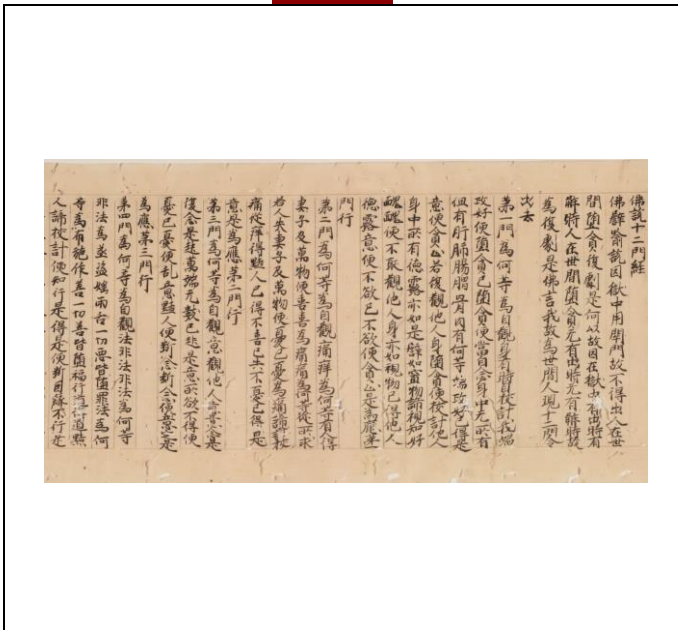 佛説十二門經
佛辟喻説因獄中用閉門故不得出入在世
間墮貪復劇是何以故因在獄中有出時有
解時人在世間墮貪无有出時无有解時故
為復劇是佛言我故為世間人現十二門令
出去
第一門為何等為自觀身體校計我端
政好便墮貪已墮貪便當自念身中无所有
但有肝肺腸胃骨肉有何等端政好得是
意便貪止若復觀他人身墮貪便校計他人
身中所有惡露亦如是辟如畫物諦視知好
醜醜便不取觀他人身亦如視物已得他人
惡露意便不欲已不欲便貪止是為應第一
門行
第二門為何等為自觀痛痒為何等有人得
妻子及萬物便喜喜為痛痛為何等從所求
若人失妻子及萬物便憂已憂為痛諦校
痛從痒得黠人已得不喜已失不憂已得是
意是為應第二門行
第三門為何等為自觀意觀他人意意念是
復念是趣萬端无數已悲是意所欲不得便
憂已憂便乱意黠人便斷念斷念便無是
為應第三門行
第四門為何等為自觀法非法非法為何等
非法為煞盜婬兩舌一切惡皆墮罪法為何
等為布施作善一切善皆墮福行道得道黠
人諦校計便知行是得是便斷因緣不行是